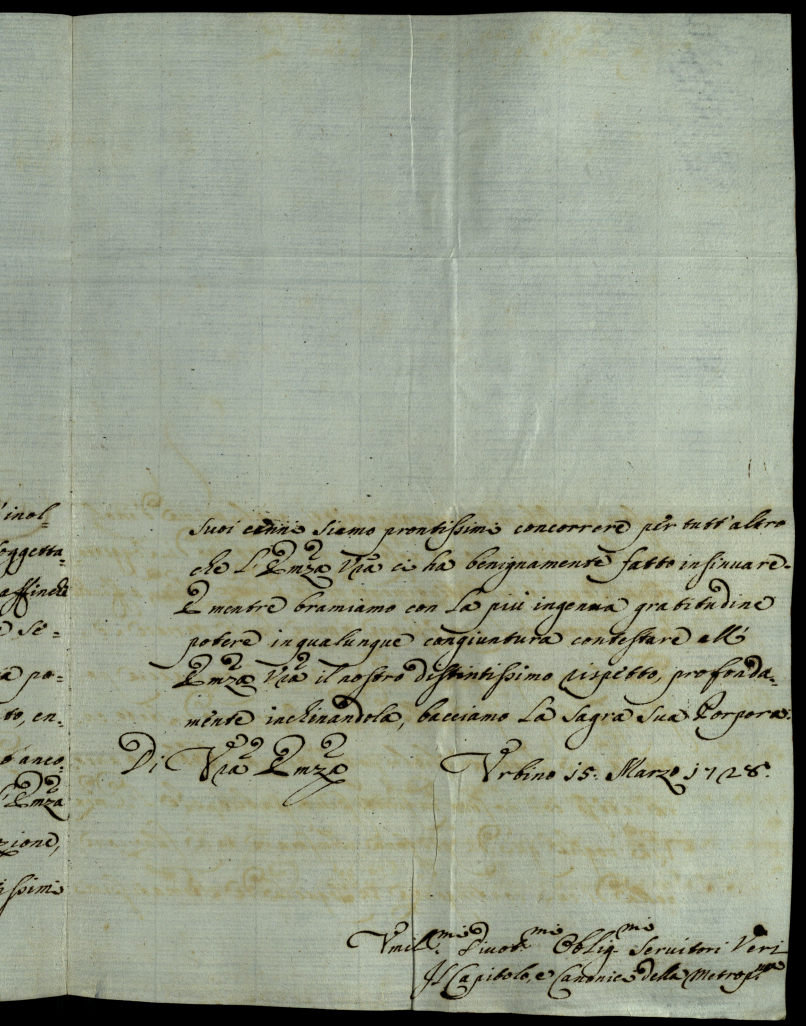 'inol=
soggetta=
affinche
e se=
a po=
to, en=
o anco=
l'Emza
zione,
issimi
suoi cenni siamo prontissimi concorrere per tutt'altro
che l'Emza Vra ci ha benignamente fatto insinuare.
E mentre bramiamo con la più ingenua gratitudine
potere in qualunque congiuntura contestare all'
Emza Vra il nostro distintissimo rispetto, profonda=
mente inchinandola, bacciamo la Sagra Sua Porpora.
Di Vra Emza Urbino 15. Marzo 1728.
Umil.mi Divot.mi Oblig.mi Servitori Veri
Il Capitolo, e Canonici della Metrop.na